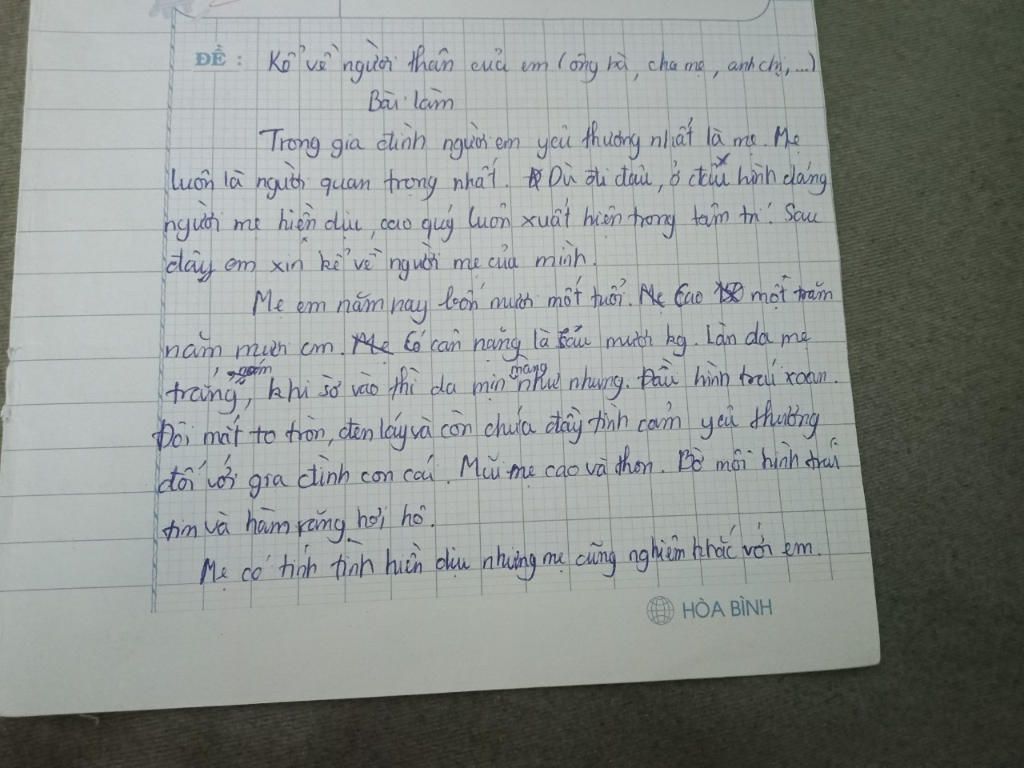 ĐỀ : Kể về người thân của em (ông bà, cha mẹ, anh chị, ...)
Bài làm
Trong gia đình người em yêu thương nhất là mẹ. Mẹ
luôn là người quan trọng nhất. Dù đi đâu, ở đâu hình dáng
người mẹ hiền dịu, cao quý luôn xuất hiện trong tâm trí. Sau
đây em xin kể về người mẹ của mình.
Mẹ em năm nay bốn mươi mốt tuổi. Cao một trăm
năm mươi cm. Có cân nặng là sáu mươi kg. Làn da mẹ
trắng, khi sờ vào thì da mịn màng như nhung. Đầu hình trái xoan.
Đôi mắt to tròn, đen láy và còn chứa đầy tình cảm yêu thương
đối với gia đình con cái. Mũi mẹ cao và thon. Bờ môi hình trái
tim và hàm răng hơi hô.
Mẹ có tính tình hiền dịu nhưng mẹ cũng nghiêm khắc với em.
HÒA BÌNH